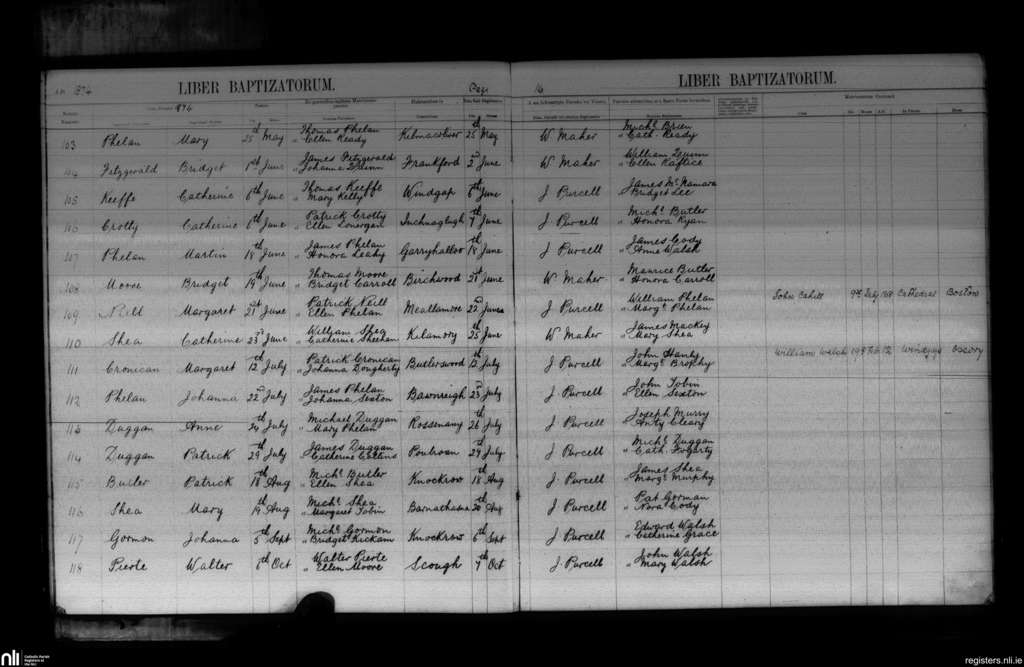 in 1874 LIBER BAPTIZATORUM. Page 16 LIBER BAPTIZATORUM.
1874
103 Phelan Mary 25th May Thomas Phelan Kilmacoliver 25th May W Maher Michl. Brien
" Ellen Ready " Cath. Ready
104 Fitzgerald Bridget 1st June James Fitzgerald Frankford 2nd June W Maher William Quinn
" Johanna Quinn " Ellen
105 Keeffe Catherine 6th June Thomas Keeffe Windgap 7th June J Purcell James McNamara
" Mary Kelly Bridget Lee
106 Crotty Catherine 6th June Patrick Crotty 7th June J Purcell Michl. Butler
" Ellen Lonergan " Honora Ryan
107 Phelan Martin 18th June James Phelan Garryhalloo 18th June J Purcell James Cody
" Honora Leahy " Anne Walsh
108 Moore Bridget 19th June Thomas Moore Birchwood 21st June W Maher Maurice Butler
" Bridget Carroll " Honora Carroll
109 Neill Margaret 21st June Patrick Neill 22nd June J Purcell William Phelan John Cahill Cathedral Boston
" Ellen Phelan " Margt. Phelan
110 Shea Catherine 23rd June William Shea Kilamory 25th June W Maher James Mackey
" Catherine Sheehan " Mary Shea
111 Cronican Margaret 12th July Patrick Cronican Butlerswood 13th July J Purcell John Hanly William Welsh 19th Feb 12 Windgap Ossory
" Johanna Dougherty " Margt. Brophy
112 Phelan Johanna 22nd July James Phelan Bawnreigh 23rd July J Purcell John Tobin
" Johanna Sexton " Ellen Sexton
Duggan Anne 24th July Michael Duggan Rossenany 26th July J Purcell Joseph Murry
" Mary Phelan " Anty Cleary
114 Duggan Patrick 29th July James Duggan Poulroan 29th July J Purcell Michl. Duggan
" Catherine Collins " Cath. Fogarty
115 Butler Patrick 18th Aug Michl. Butler Knockrow 18th Aug J Purcell James Shea
" Ellen Shea " Margt. Murphy
116 Shea Mary 19th Aug Michl. Shea 20th Aug J Purcell Pat Gorman
" Margaret Tobin " Nora Cody
117 Gormon Johanna 5th Sept Michl. Gormon Knockrow 6th Sept J Purcell Edward Walsh
" Bridget Kickam " Catherine Grace
118 Pierle Walter 6th Oct Walter Pierle Scough 7th Oct J. Purcell John Walsh
" Ellen Moore " Mary Walsh
nli Catholic Parish Registers at the NLI
registers.nli.ie